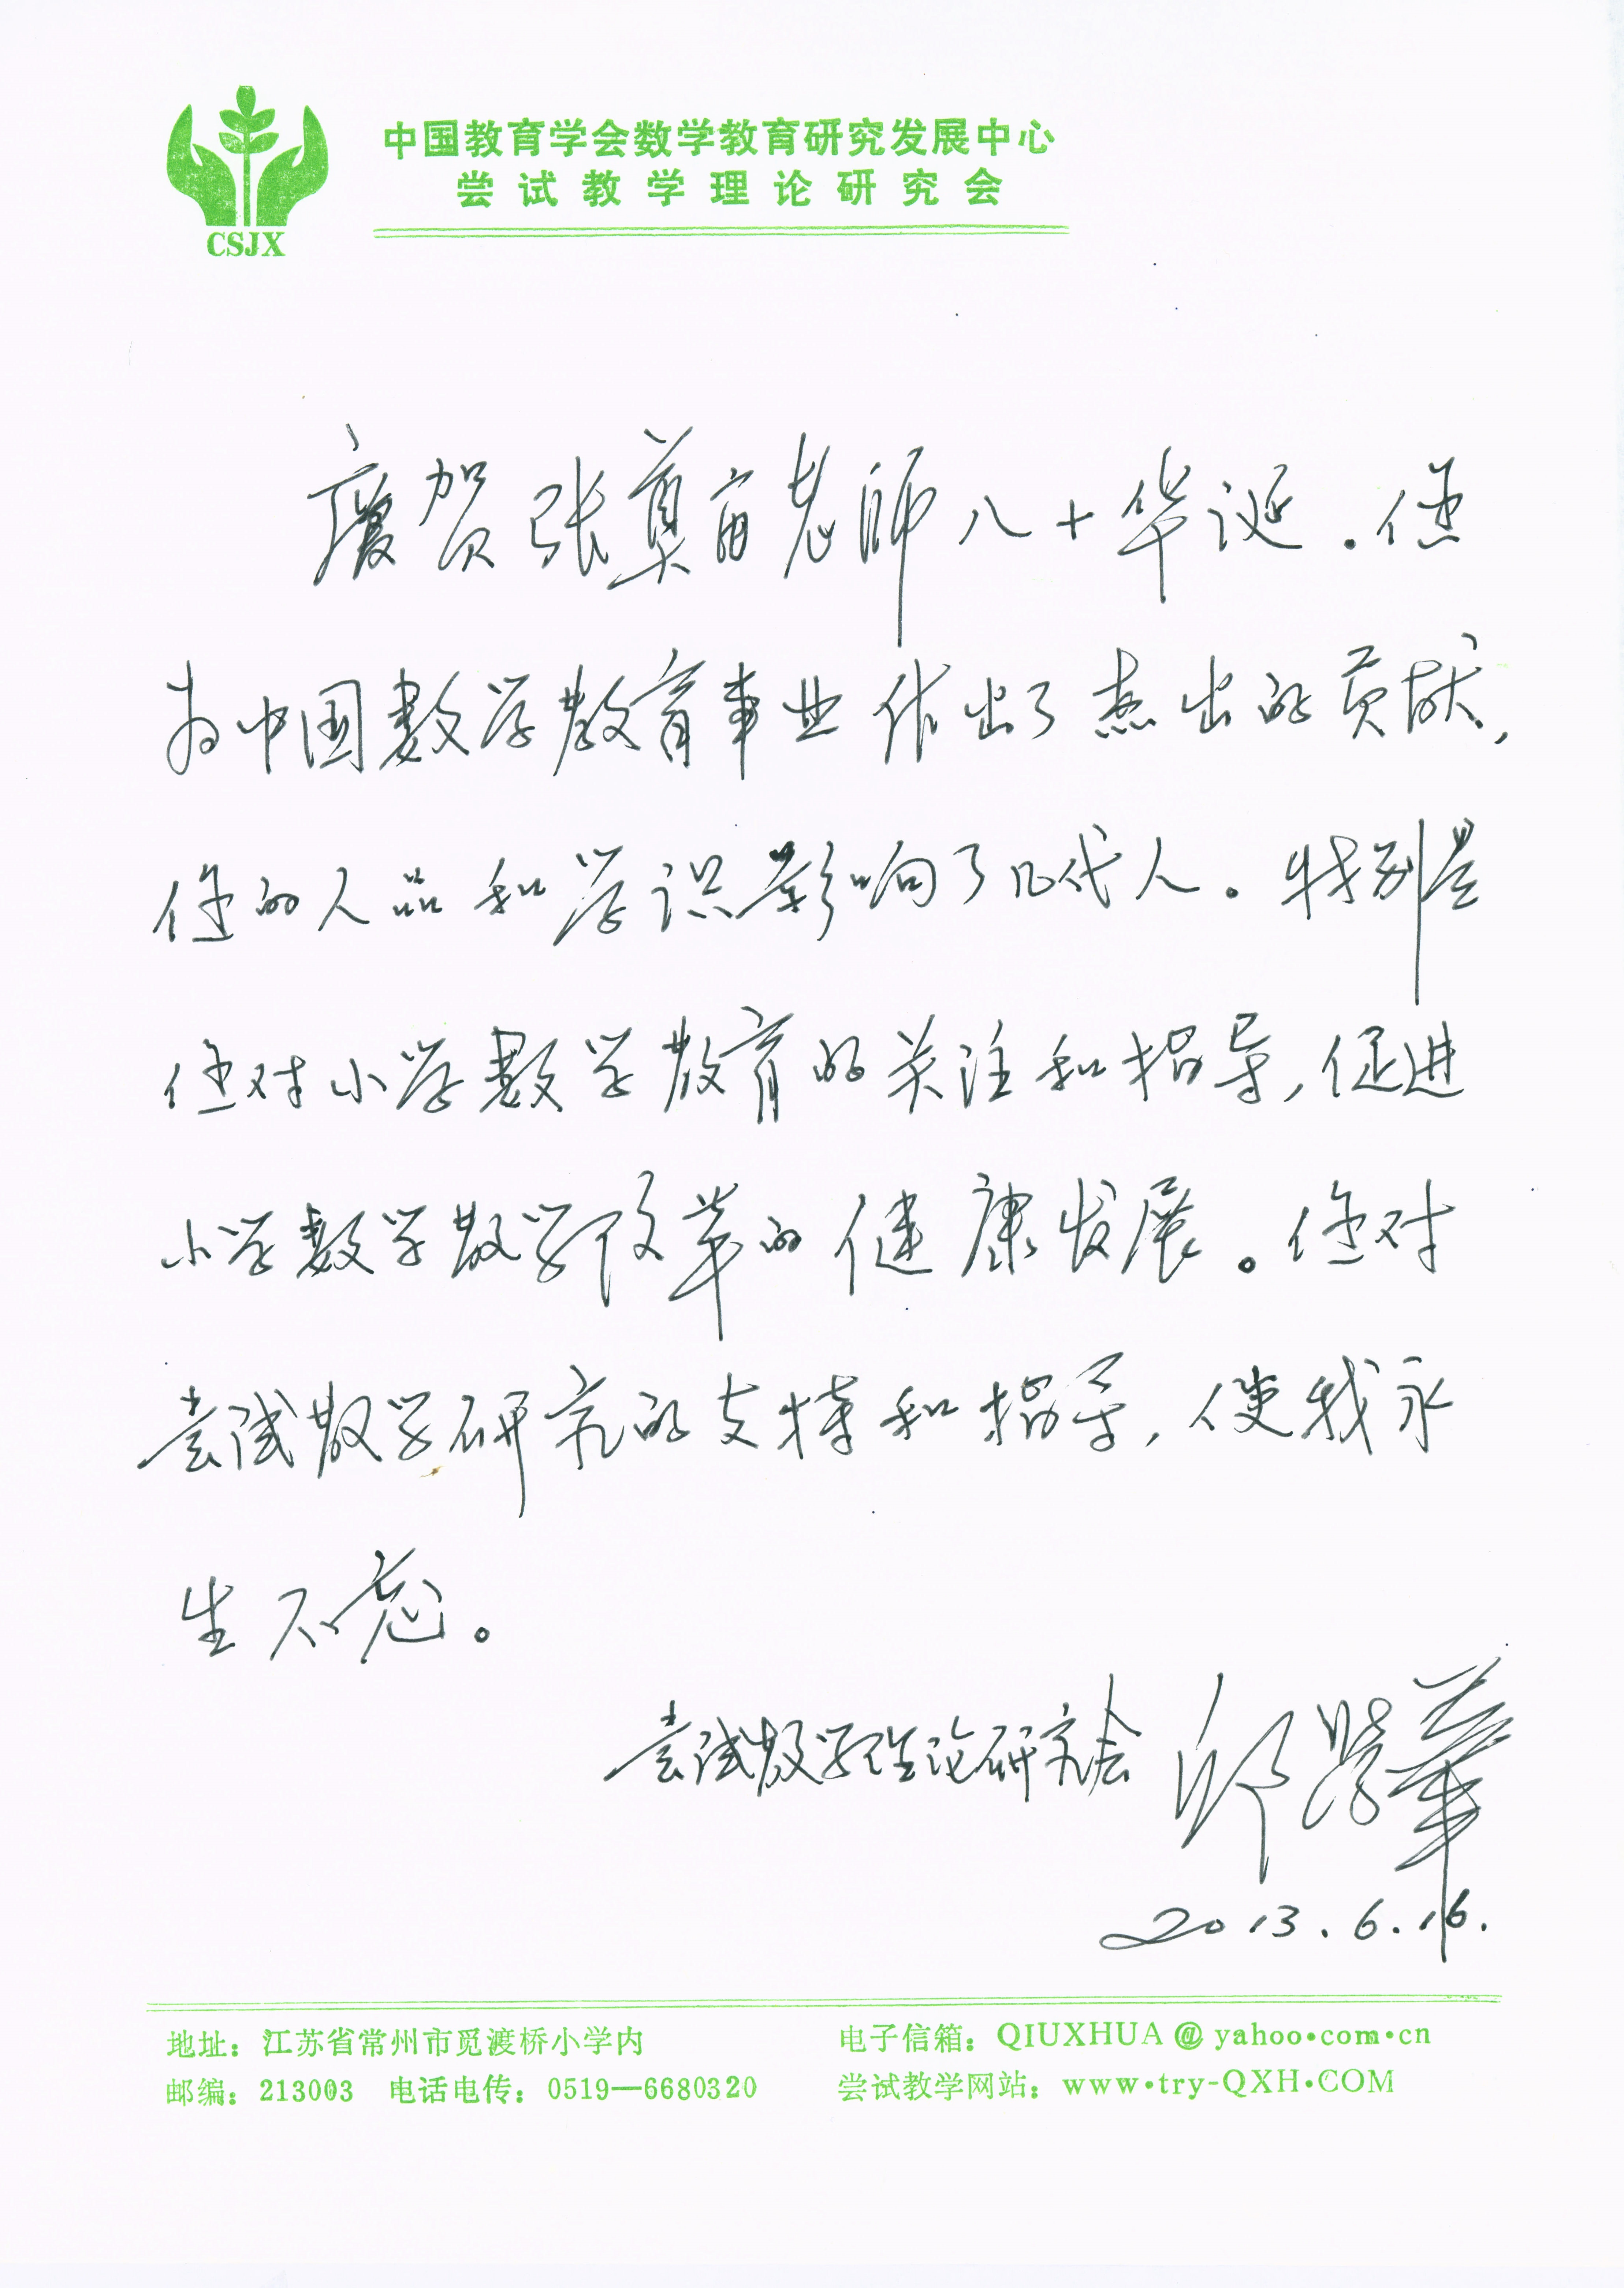 中国教育学会数学教育研究发展中心
尝试教学理论研究会
CSJX
庆贺张奠宙老师八十华诞.您
为中国数学教育事业作出了杰出的贡献,
您的人品和学识影响了几代人。特别是
您对小学数学教育的关注和指导,促进
小学数学教学改革的健康发展。您对
尝试教学研究的支持和指导,使我永
生不忘。
尝试教学理论研究会 邱学华
2013.6.16.
地址：江苏省常州市觅渡桥小学内 电子信箱：QIUXHUA@yahoo•com•cn
邮编：213003 电话电传：0519—6680320 尝试教学网站：www•try-QXH•COM